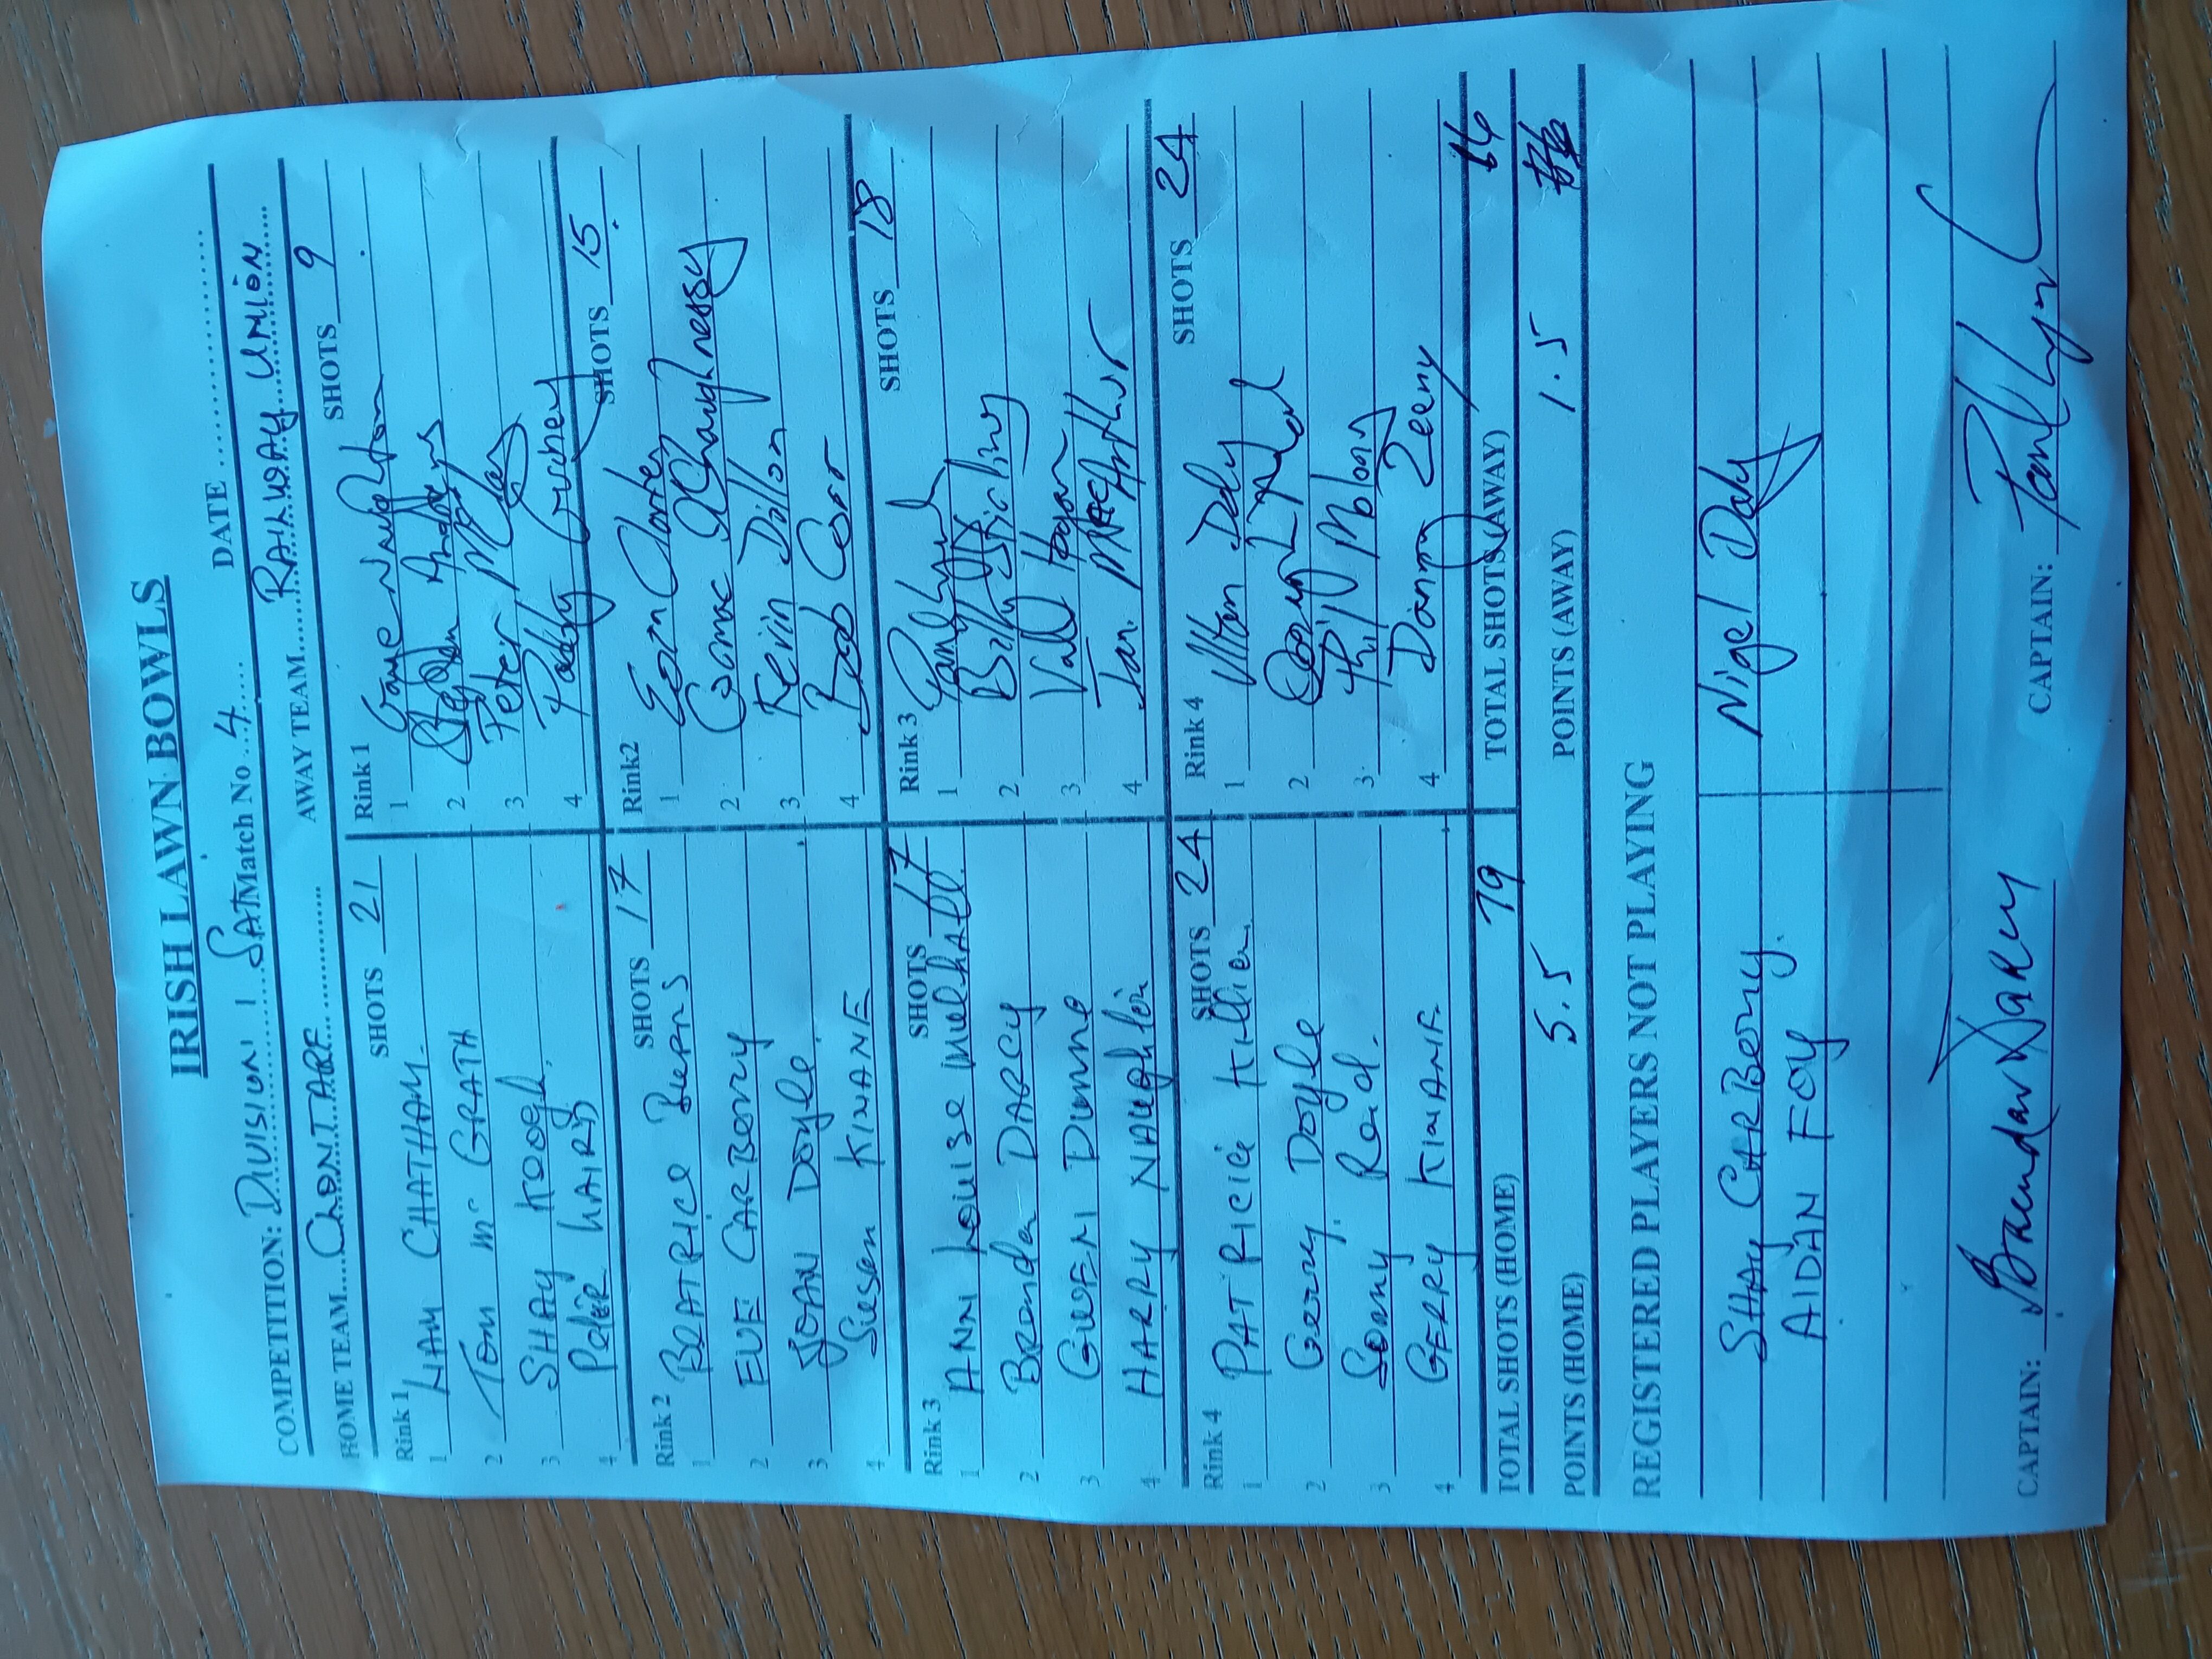 IRISH LAWN BOWLS
DATE
COMPETITION: DIVISION 1 SAT Match No 4
HOME TEAM CLONTARF AWAY TEAM RAILWAY UNION
SHOTS 21 SHOTS 9
Rink 1 Rink 1
1 LIAM CHATHAM 1 Gaye Naughton
2 TOM Mc GRATH 2 Andrews
3 SHAY KEOGH 3 Peter
4 Peter LAIRD 4 Paddy
SHOTS 17 SHOTS 15
Rink 2 Rink2
1 BEATRICE Burns 1 Eoin
2 EVE CARBERRY 2 Cormac O'Shaughnessy
3 JOAN Doyle 3 Kevin Dillon
4 Susan KINANE 4 Bob Corr
SHOTS 17 SHOTS 18
Rink 3 Rink 3
1 ANN Louise Mulhall 1
2 Brendan DARCY 2 Billy
3 GWEN Dunne 3 Hogan
4 HARRY NAUGHTON 4 Ian MacArthur
SHOTS 24 SHOTS 24
Rink 4 Rink 4
1 PATRICIA Killian 1 Daly
2 Gerry Doyle 2
3 Reid 3 Phil Molony
4 GERRY KINANE 4 Zeeny
TOTAL SHOTS (HOME) 79 TOTAL SHOTS (AWAY) 66
POINTS (HOME) 5.5 POINTS (AWAY) 1.5
REGISTERED PLAYERS NOT PLAYING
SHAY CARBERRY Nigel Daly
AIDAN FOY
CAPTAIN: Brendan Darcy CAPTAIN: